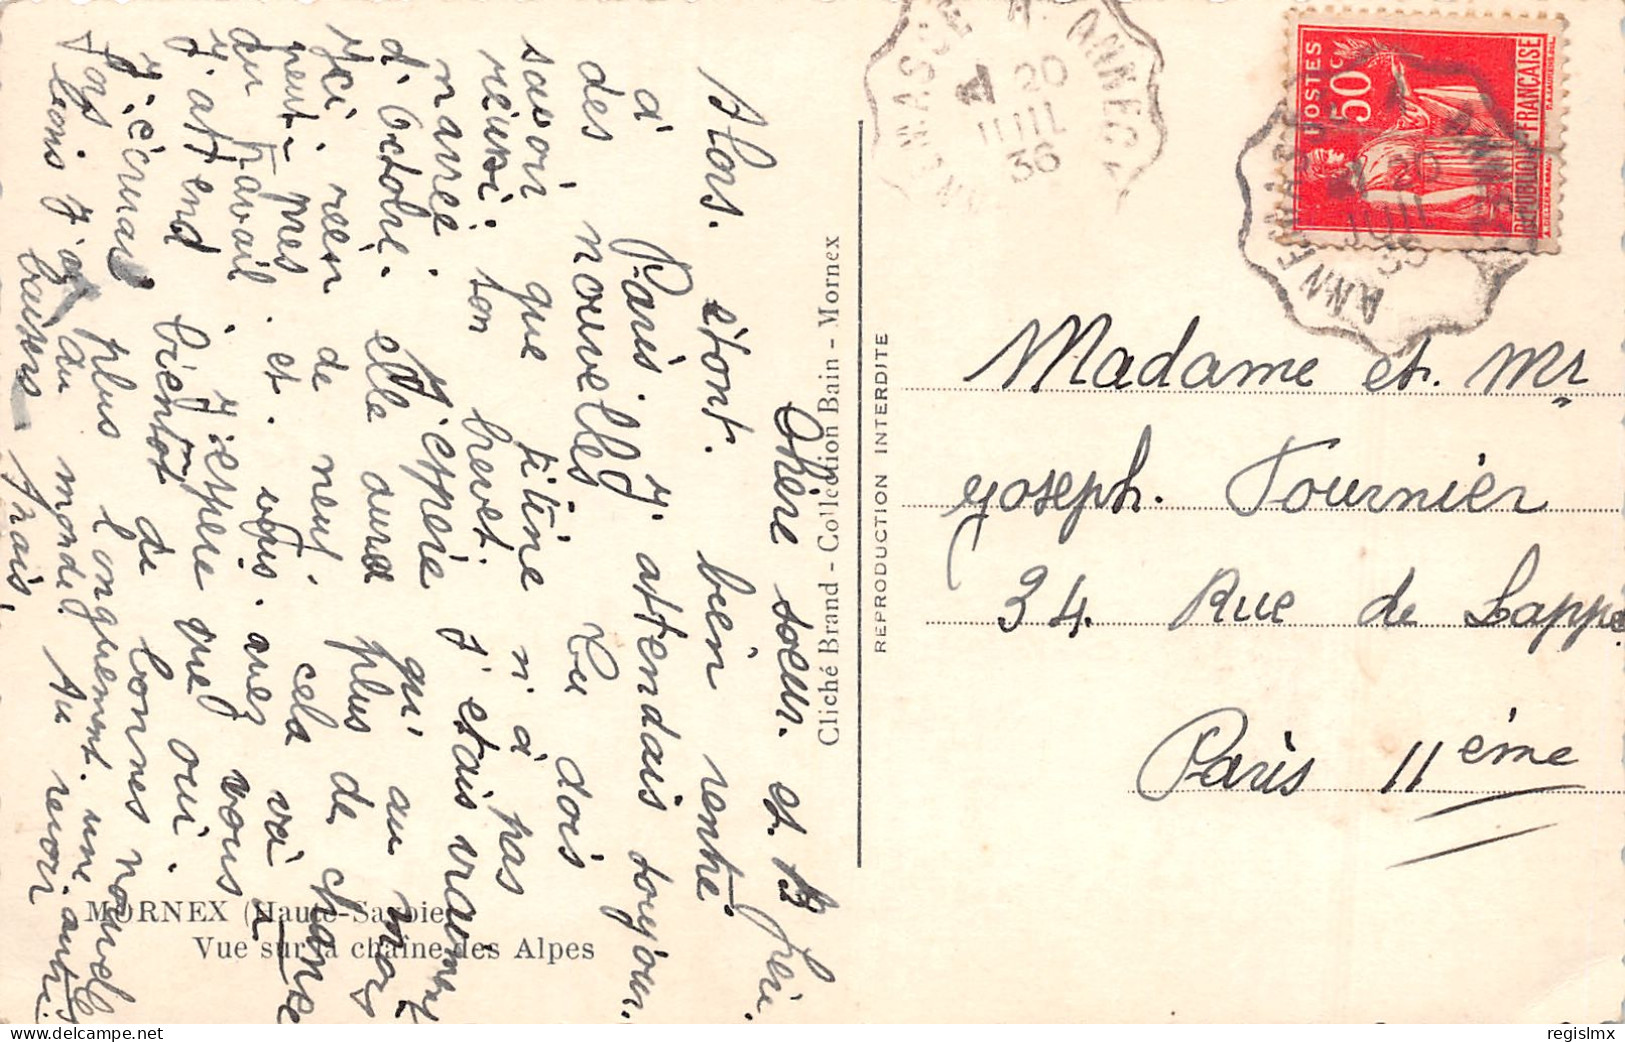 Chère soeur. et. B frèi
Alors. s'tont. bein rentré.
à Paris. J'attendais toujour.
des nouvelles Tu dois
savoir que titine n'à pas
réussi. son brevet. J'étais vraiment
navrée J'espère qu'au mois
d'Octobre. elle aura plus de chance
Ici rien de neuf. cela va
peut-près. et. vous. avez vous
du travail. J'espère que oui.
J'attend bientot de bonnes nouvel
J'écrirais plus longuement. une autre
fois J'ai du monde. Au revoir
bons baisers Anaïs.
MORNEX (Haute-Savoie)
Vue sur la chaîne des Alpes
Cliché Brand - Collection Bain - Mornex
REPRODUCTION INTERDITE
ANNEMASSE A ANNECY
20
JUIL
36
POSTES
50c
REPUBLIQUE FRANÇAISE
ANNEMASSE A ANNECY
20
JUIL
36
Madame et. Mr
Joseph. Fournier
34. Rue de Lappe
Paris 11ème
regislmx